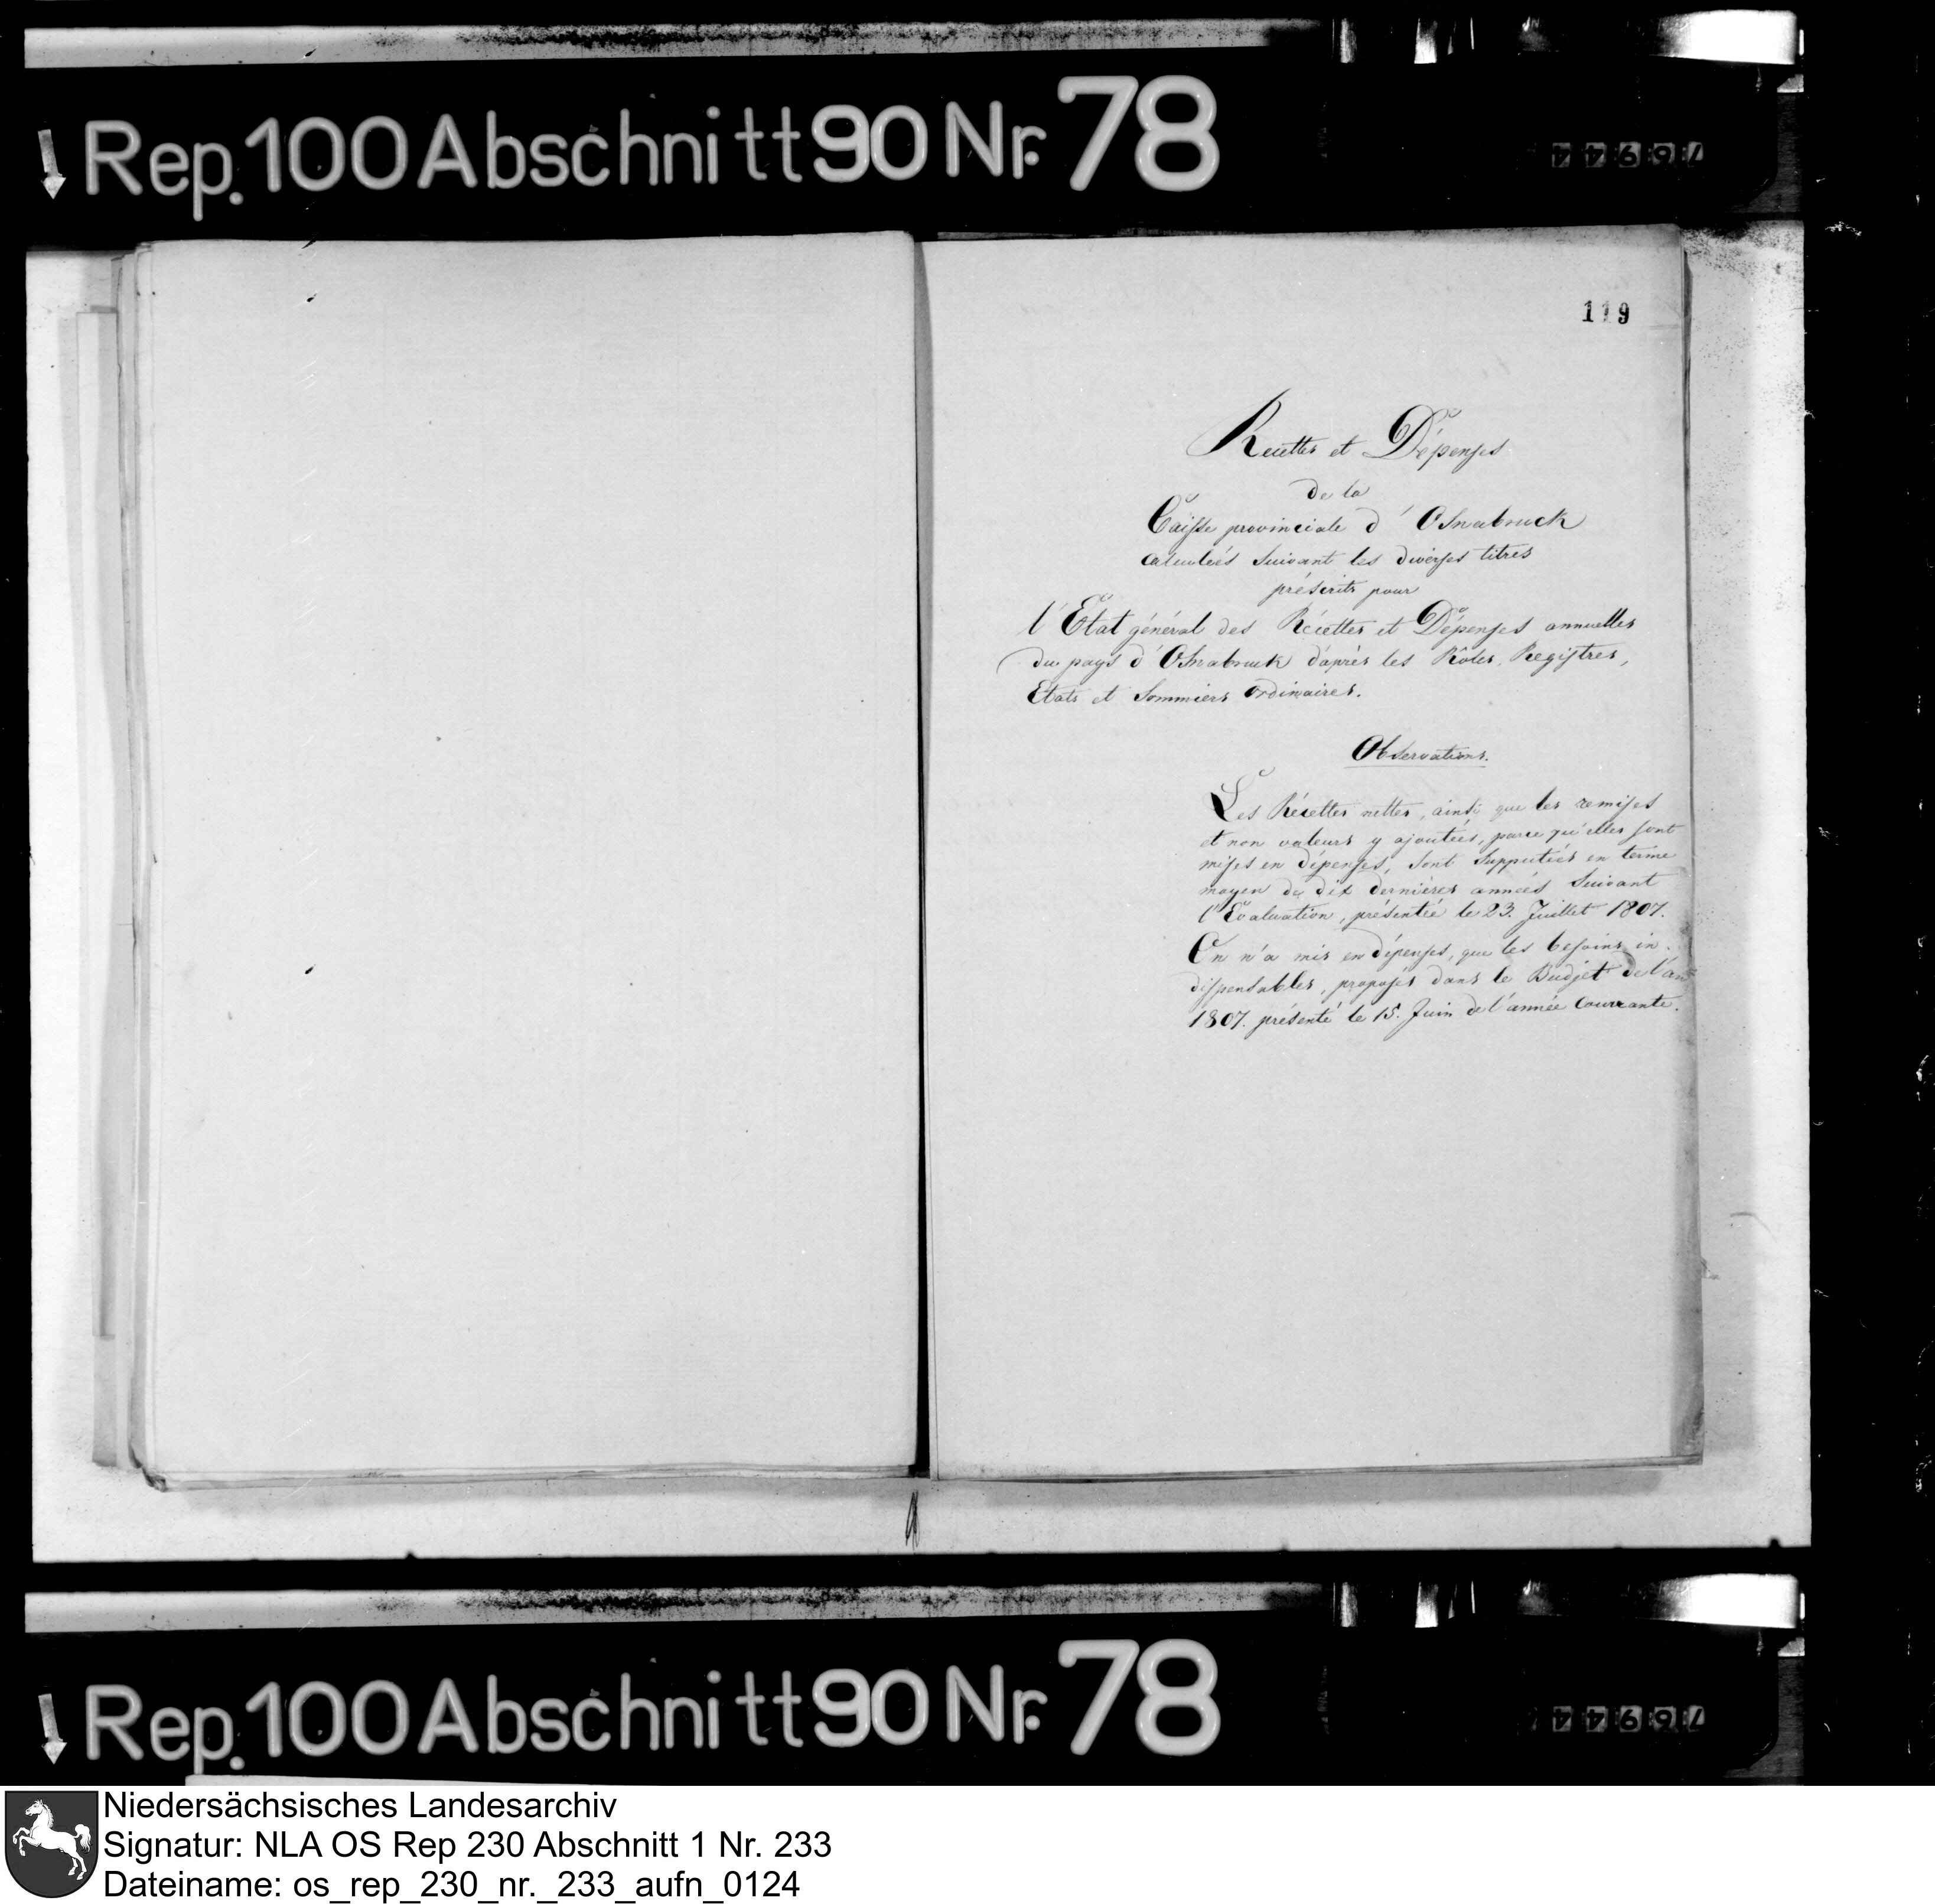 Rep. 100 Abschnitt 90 Nr. 78
76944
119
Recettes et Dépenses
de la
Caisse provinciale d'Osnabruck
calculées suivant les diverses titres
préscrits pour
l'Etat général des Récettes et Dépenses annuelles
du pays d'Osnabruck d'après les Rôles, Registres,
Etats et Sommiers ordinaires.
Observations.
Les Récettes nettes, ainsi que les remises
et non valeurs y ajoutées, parce qu'elles sont
mises en dépenses, sont supputées en terme
moyen de dix dernières années suivant
l'Evaluation, présentée le 23. Juillet 1807.
On n'a mis en dépenses, que les besoins in-
dispensables, proposés dans le Budjet de l'an
1807. présenté le 15. Juin de l'année courrante.
Rep. 100 Abschnitt 90 Nr. 78
76944
Niedersächsisches Landesarchiv
Signatur: NLA OS Rep 230 Abschnitt 1 Nr. 233
Dateiname: os_rep_230_nr._233_aufn_0124